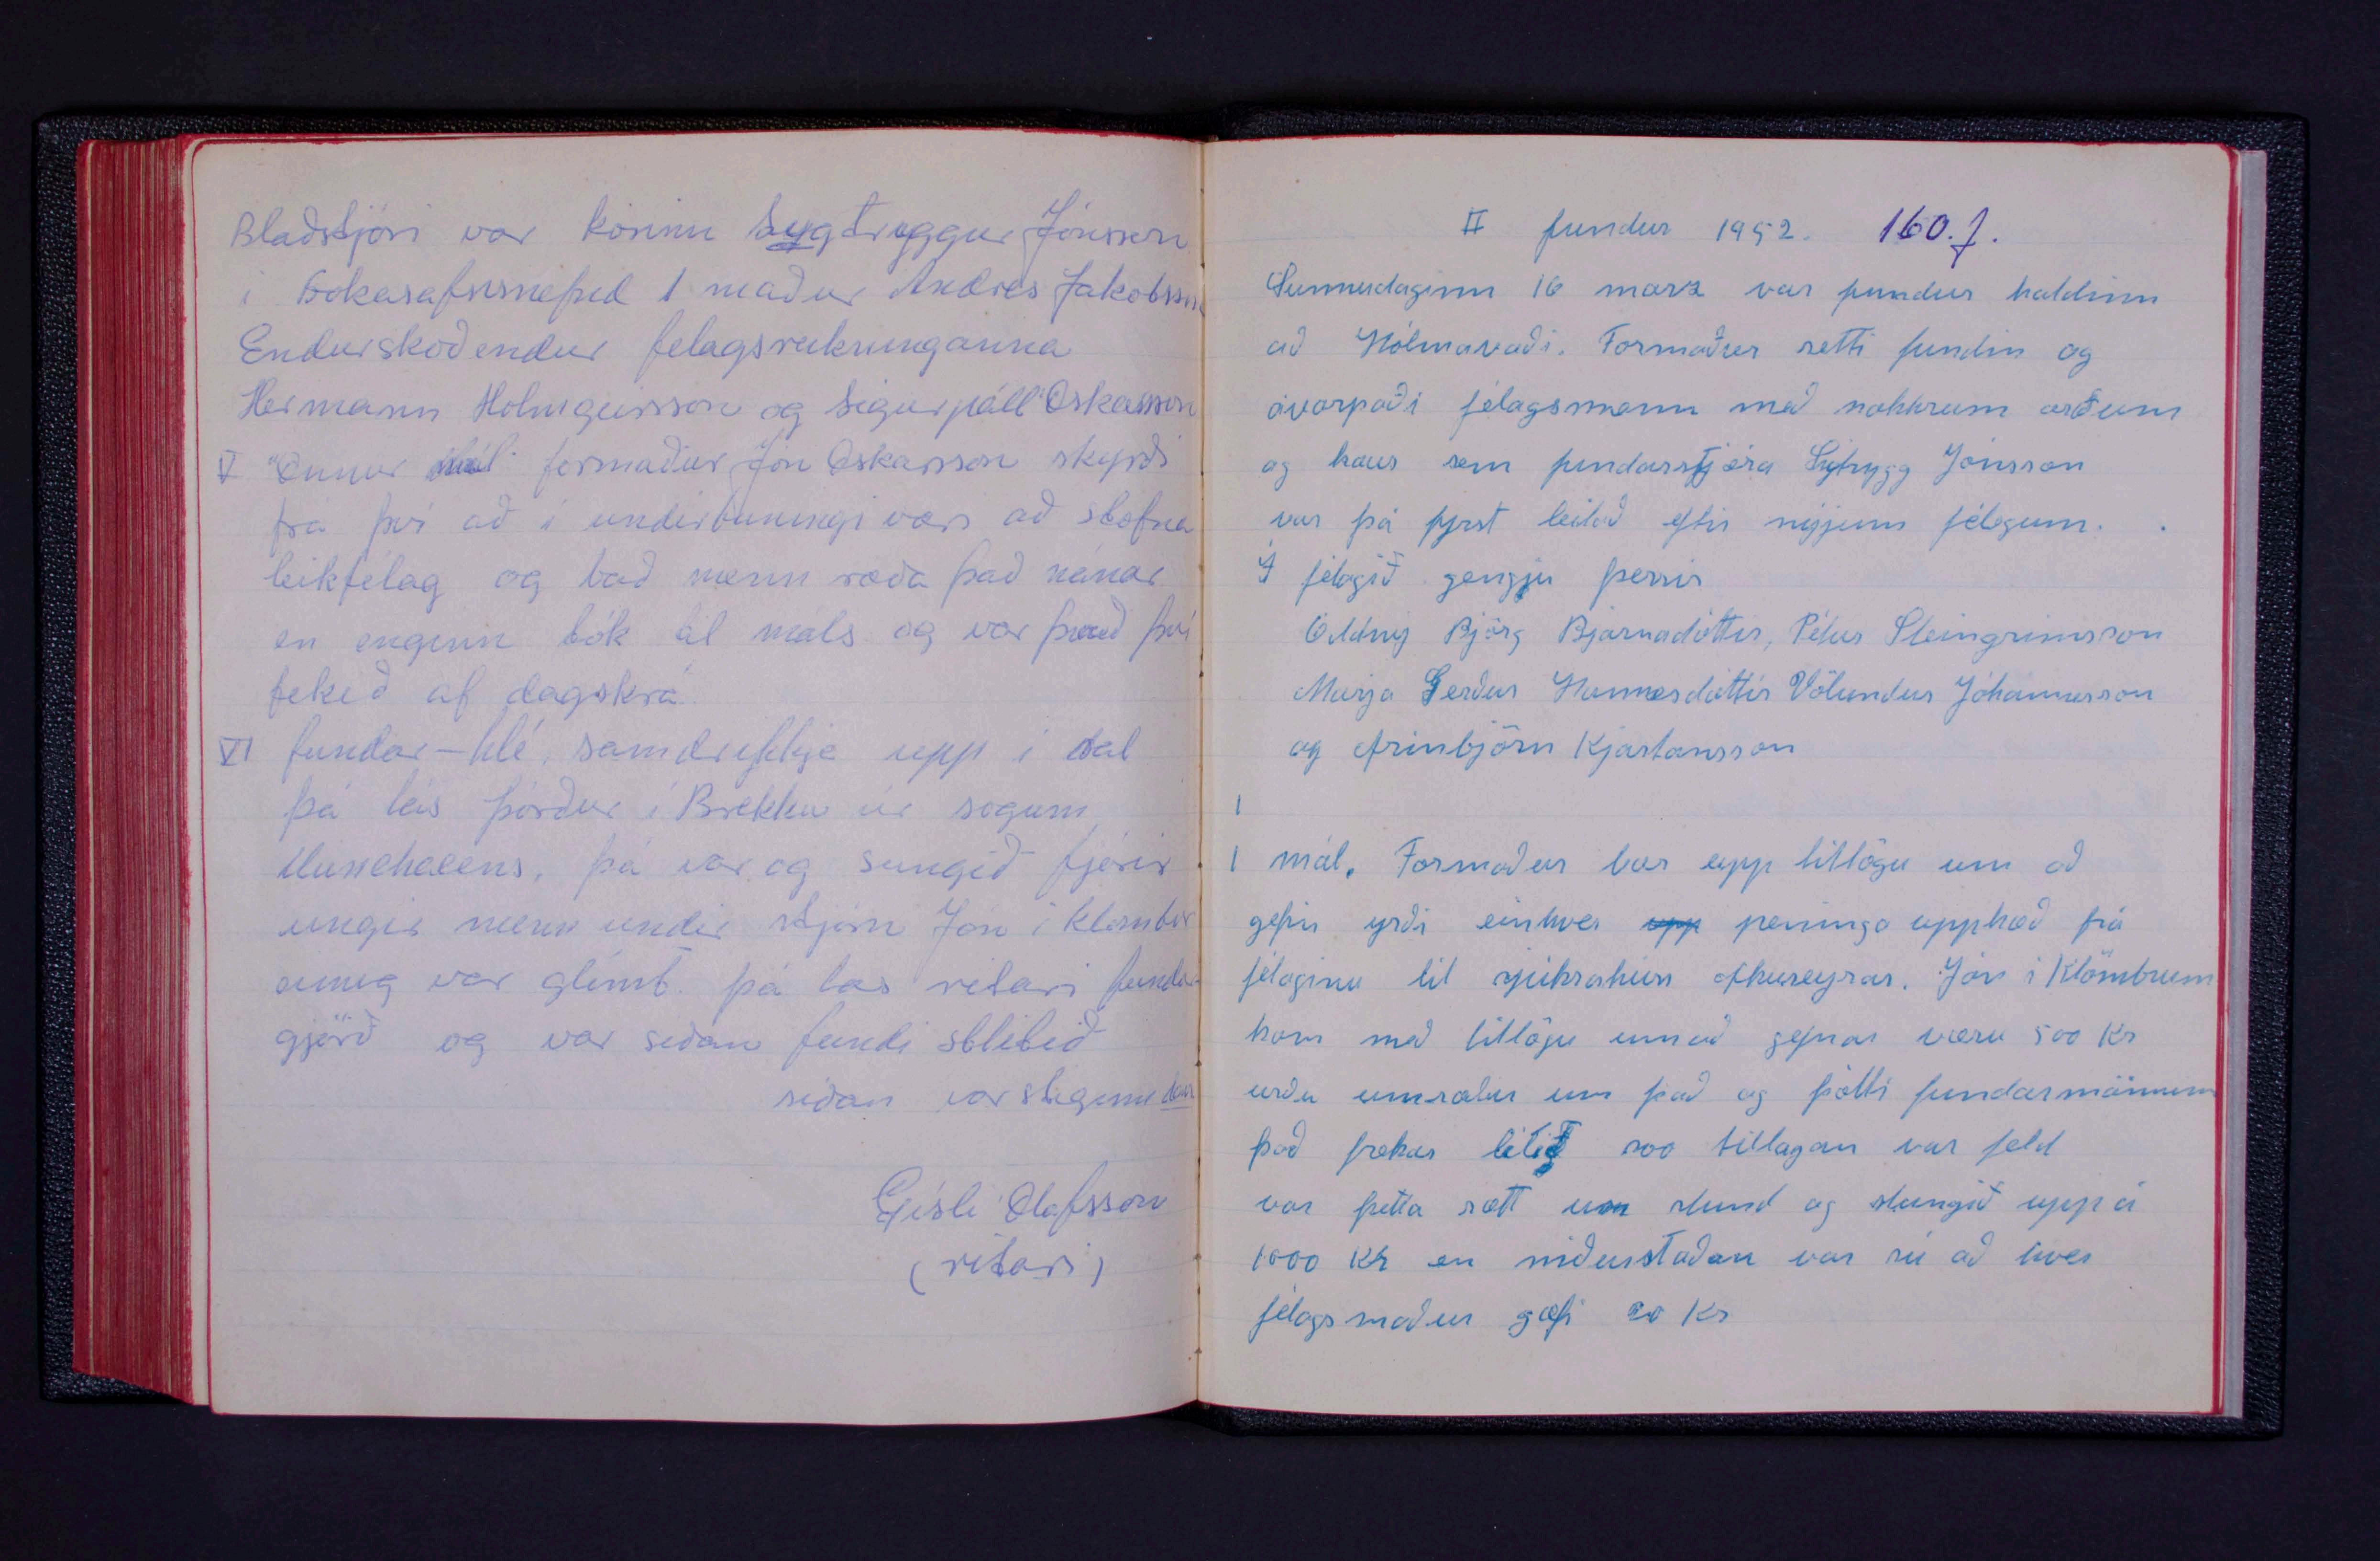 Blaðstjóri var kosinn Sygtryggur Jónsson
i Bokasafnsnefnd 1 maður Andres Jakobsson
Endurskoðendur felagsreikninganna
Hermann Holmgeirsson og Sigurpáll Oskarsson
V Önnur mál. formaður Jón Oskarsson skyrði
frá því að i undirbuningi væri að stofna
leikfélag og bað menn ræða það nánar
en enginn tók til mals og var það því
tekið af dagskrá.
VI fundar-hlé, samdrykkja upp i sal
þá las þórður i Brekku úr sogum
Munchaeens, þá var og sungið fjórir
ungir menn undir stjórn Jón i klombr
einnig var glímt. þá las ritari fundar-
gjörð og var siðan fundi slitið
siðan var steginn dans
Gísli Olafsson
(ritari)
II fundur 1952. 160. f.
Sunnudaginn 16 marz var fundur haldinn
að Hólmavaði. Formaður setti fundin og
ávarpaði félagsmenn með nokkrum orðum
og kaus sem fundarstjóra Sigtrygg Jónsson
var þá fyrst leitað eftir nýjum félögum.
Í félagið gengju þessir
Oddný Björg Bjarnadóttir, Pétur Steingrimsson
Marja Gerður Hannesdóttir Völundur Jóhannesson
og Arinbjörn Kjartansson
1
1 mál. Formaður bar upp tillögu um að
gefin yrði einhver upp peninga upphæð frá
félaginu til sjúkrahúss Akureyrar. Jón i Klömbrum
kom með tillögu um að gefnar væru 500 Kr
urðu umræður um það og þótti fundarmönnum
það frekar lítið svo tillagan var feld
var þetta rætt um stund og stungið upp á
1000 Kr en niðurstaðan var sú að hver
félagsmaður gæfi 20 Kr